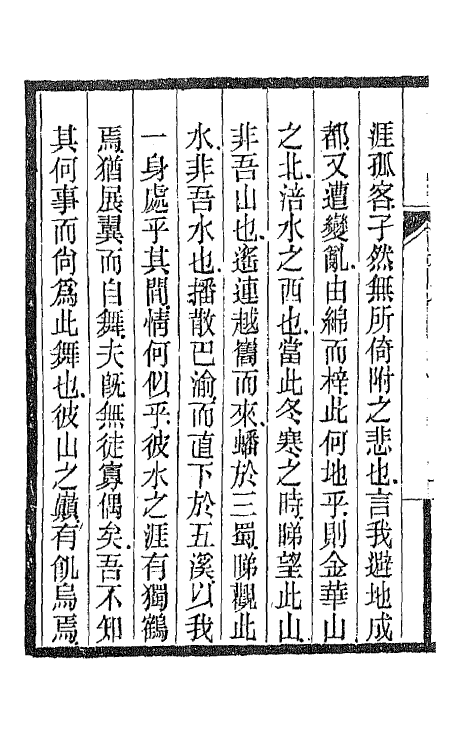 涯孤客孑然無所倚附之悲也言我避地成
都又遭變亂由綿而梓此何地乎則金華山
之北涪水之西也當此冬寒之時睇望此山
非吾山也逶連越巂而來蟠於三蜀睇觀此
水非吾水也播散巴渝而直下於五溪以我
一身處乎其間情何似乎彼水之涯有獨鶴
焉猶展翼而自舞夫旣無徒寡偶矣吾不知
其何事而尙爲此舞也彼山之巔有飢烏焉